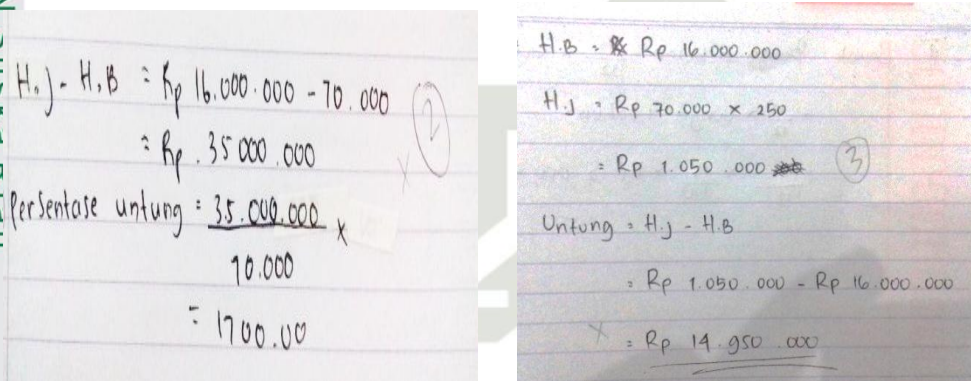 H.j - H.B = Rp 16.000.000 - 70.000
= Rp. 35 000.000
Persentase untung = 35.000.000 x
70.000
= 1700.00
2
H.B = Rp 16.000.000
H.j = Rp 70.000 x 250
= Rp 1.050.000
3
Untung = H.j - H.B
= Rp 1.050.000 - Rp 16.000.000
= Rp 14.950.000